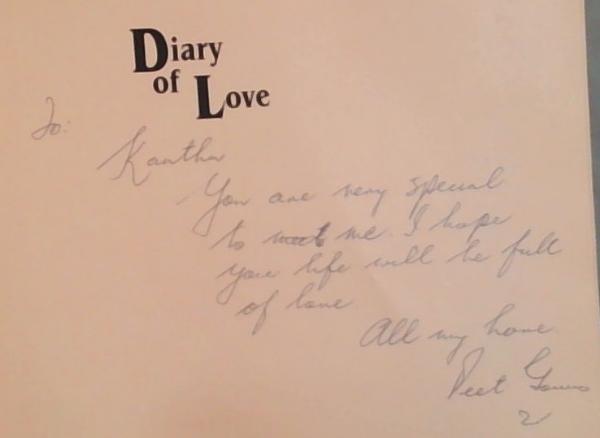 Diary
of Love
To:
Kantha
You are very special
to me. I hope
your life will be full
of love
All my love
Peet
2